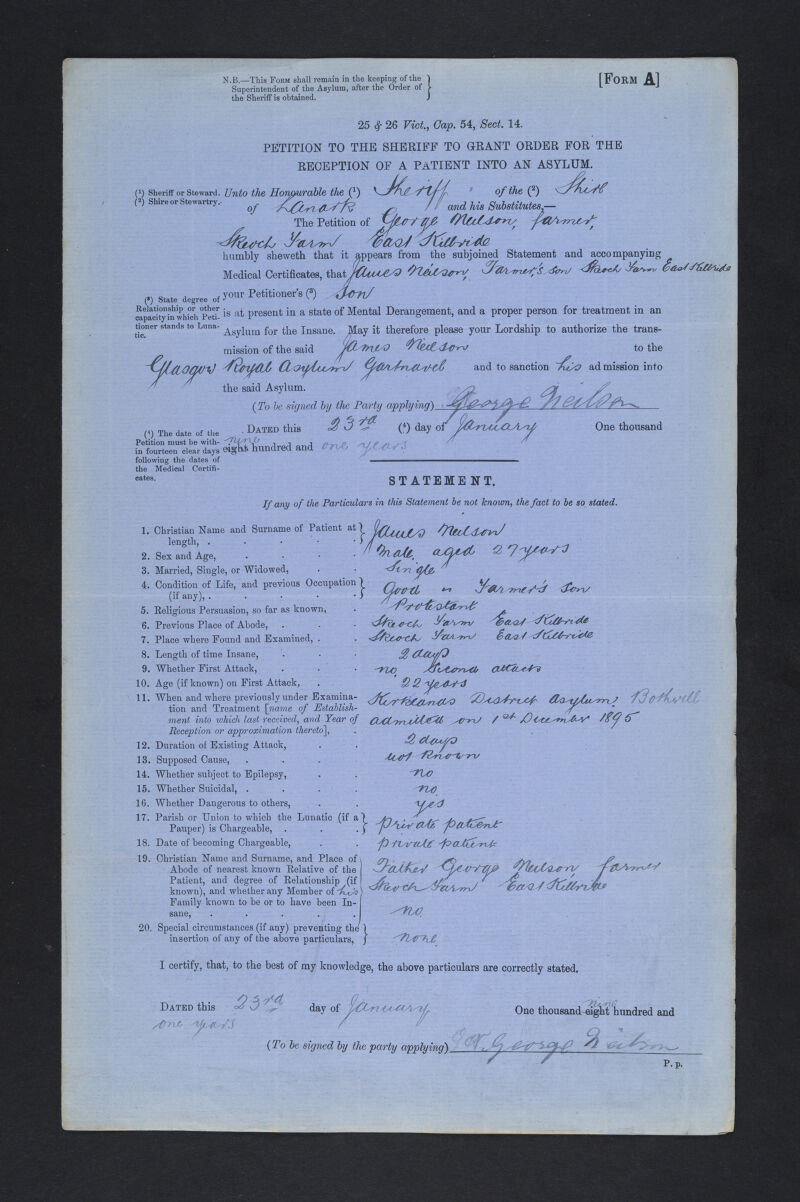 N.B.—This Form shall remain in the keeping of the
Superintendent of the Asylum, after the Order of
the Sheriff is obtained.
[Form A]
25 & 26 Vict., Cap. 54, Sect. 14.
PETITION TO THE SHERIFF TO GRANT ORDER FOR THE
RECEPTION OF A PATIENT INTO AN ASYLUM.
(1) Sheriff or Steward.
(2) Shire or Stewartry.
Unto the Honourable the (1) Sheriff of the (2) Shire
of Lanark and his Substitutes,—
The Petition of George Neilson, farmer,
Skeoch Farm East Kilbride
humbly sheweth that it appears from the subjoined Statement and accompanying
Medical Certificates, that James Neilson, Farmer,s son Skeoch Farm East Kilbride
(3) State degree of
Relationship or other
capacity in which Peti-
tioner stands to Luna-
tic.
your Petitioner's (3) Son
is at present in a state of Mental Derangement, and a proper person for treatment in an
Asylum for the Insane. May it therefore please your Lordship to authorize the trans-
mission of the said James Neilson to the
Glasgow Royal Asylum Gartnavel and to sanction his admission into
the said Asylum.
(To be signed by the Party applying) George Neilson
(4) The date of the
Petition must be with-
in fourteen clear days
following the dates of
the Medical Certifi-
cates.
Dated this 23rd (4) day of January One thousand
nine
eight hundred and one years
STATEMENT.
If any of the Particulars in this Statement be not known, the fact to be so stated.
1. Christian Name and Surname of Patient at
length, . . . . . James Neilson
2. Sex and Age, . . . . Male. aged 27 years
3. Married, Single, or Widowed, . . Single
4. Condition of Life, and previous Occupation
(if any), . . . . . Good " Farmer's Son
5. Religious Persuasion, so far as known, . Protestant
6. Previous Place of Abode, . . . Skeoch Farm East Kilbride
7. Place where Found and Examined, . . Skeoch Farm East Kilbride
8. Length of time Insane, . . . 2 days
9. Whether First Attack, . . . no. Second attack
10. Age (if known) on First Attack, . . 22 years
11. When and where previously under Examina-
tion and Treatment [name of Establish-
ment into which last received, and Year of
Reception or approximation thereto], .
Kirklands District Asylum, Bothwell
admitted on 1st December 1895
12. Duration of Existing Attack, . . 2 days
13. Supposed Cause, . . . . not known
14. Whether subject to Epilepsy, . . no
15. Whether Suicidal, . . . . no.
16. Whether Dangerous to others, . . yes
17. Parish or Union to which the Lunatic (if a
Pauper) is Chargeable, . . . private patient
18. Date of becoming Chargeable, . . private patient
19. Christian Name and Surname, and Place of
Abode of nearest known Relative of the
Patient, and degree of Relationship (if
known), and whether any Member of his
Family known to be or to have been In-
sane, . . . . .
Father George Neilson, farmer
Skeoch Farm East Kilbride
no.
20. Special circumstances (if any) preventing the
insertion of any of the above particulars, none.
I certify, that, to the best of my knowledge, the above particulars are correctly stated.
nine
Dated this 23rd day of January One thousand eight hundred and
one years
(To be signed by the party applying) George Neilson
P. p.